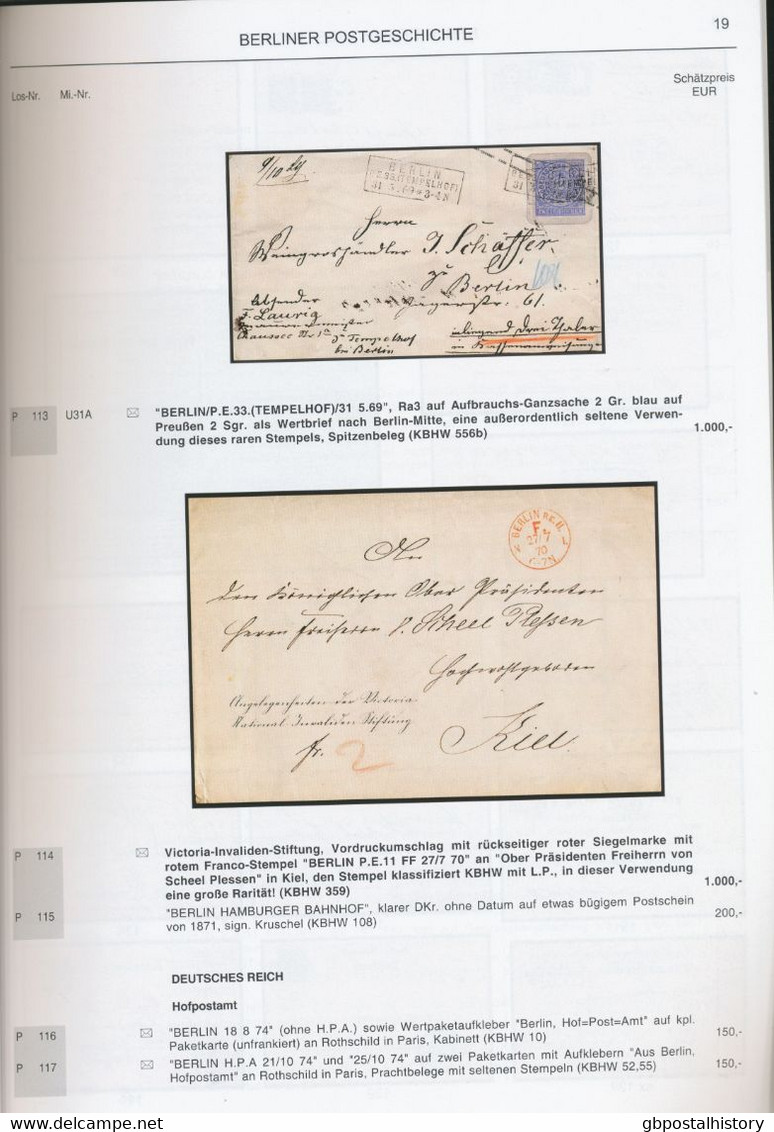 BERLINER POSTGESCHICHTE
19
Los-Nr. Mi.-Nr.
Schätzpreis
EUR
9/10 Lg
BERLIN
P.E.33.(TEMPELHOF)
31 5.69 * 3-4N
Herrn
Weingroshändler J. Schäffer
zu
Berlin
Jägerstr. 61.
Absender
F. Laurig
Chaussee
z. Tempelhof
bei Berlin
inliegend drei Thaler
in Kassenanweisung
P 113 U31A
"BERLIN/P.E.33.(TEMPELHOF)/31 5.69", Ra3 auf Aufbrauchs-Ganzsache 2 Gr. blau auf
Preußen 2 Sgr. als Wertbrief nach Berlin-Mitte, eine außerordentlich seltene Verwen-
dung dieses raren Stempels, Spitzenbeleg (KBHW 556b)
1.000,-
BERLIN P.E.11.
F.
27/7
70
An
den Königlichen Ober Präsidenten
Herrn Freiherrn v. Scheel Plessen
Hochwohlgeboren
Angelegenheiten der Victoria-
National-Invaliden-Stiftung
Kiel
fr. 2
P 114
Victoria-Invaliden-Stiftung, Vordruckumschlag mit rückseitiger roter Siegelmarke mit
rotem Franco-Stempel "BERLIN P.E.11 FF 27/7 70" an "Ober Präsidenten Freiherrn von
Scheel Plessen" in Kiel, den Stempel klassifiziert KBHW mit L.P., in dieser Verwendung
eine große Rarität! (KBHW 359)
1.000,-
P 115
"BERLIN HAMBURGER BAHNHOF", klarer DKr. ohne Datum auf etwas bügigem Postschein
von 1871, sign. Kruschel (KBHW 108)
200,-
DEUTSCHES REICH
Hofpostamt
P 116
"BERLIN 18 8 74" (ohne H.P.A.) sowie Wertpaketaufkleber "Berlin, Hof=Post=Amt" auf kpl.
Paketkarte (unfrankiert) an Rothschild in Paris, Kabinett (KBHW 10)
150,-
P 117
"BERLIN H.P.A 21/10 74" und "25/10 74" auf zwei Paketkarten mit Aufklebern "Aus Berlin,
Hofpostamt" an Rothschild in Paris, Prachtbelege mit seltenen Stempeln (KBHW 52,55)
150,-
gbpostalhistory